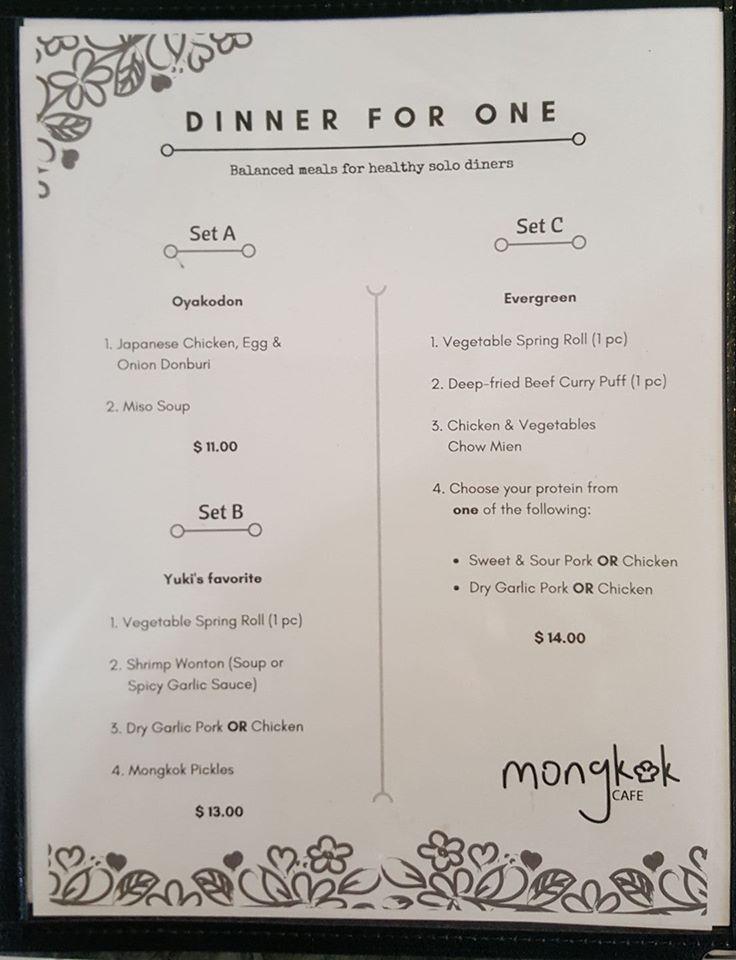 DINNER FOR ONE
Balanced meals for healthy solo diners
Set A
Oyakodon
1. Japanese Chicken, Egg &
Onion Donburi
2. Miso Soup
$ 11.00
Set B
Yuki's favorite
1. Vegetable Spring Roll (1 pc)
2. Shrimp Wonton (Soup or
Spicy Garlic Sauce)
3. Dry Garlic Pork OR Chicken
4. Mongkok Pickles
$ 13.00
Set C
Evergreen
1. Vegetable Spring Roll (1 pc)
2. Deep-fried Beef Curry Puff (1 pc)
3. Chicken & Vegetables
Chow Mien
4. Choose your protein from
one of the following:
• Sweet & Sour Pork OR Chicken
• Dry Garlic Pork OR Chicken
$ 14.00
mongkok
CAFE